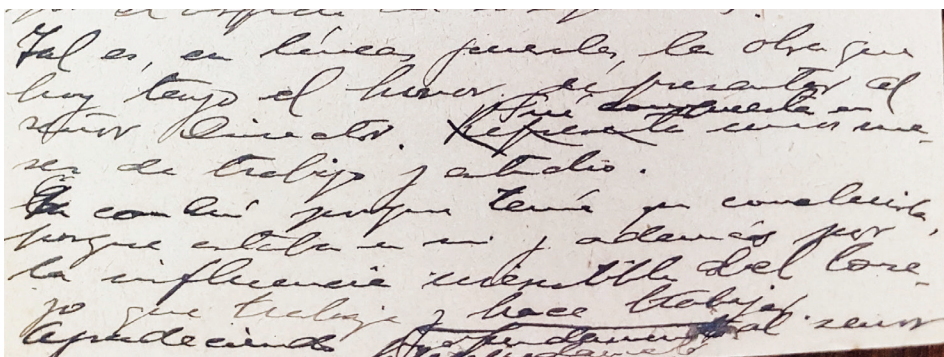 Tal es, en líneas generales, la obra que
hoy tengo el honor de presentar al
señor Director. Fué compuesta en
Representa unos me-
ses de trabajo y estudio.
La concluí porque tenía que concluirla,
porque estaba en mi y además por
la influencia del Conse-
jo que trabaja y hace trabajar.
Agradeciendo profundamente al señor